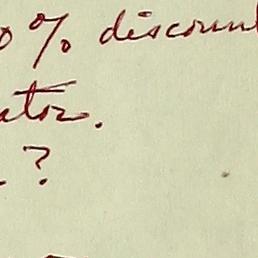 0% discount
ator.
?